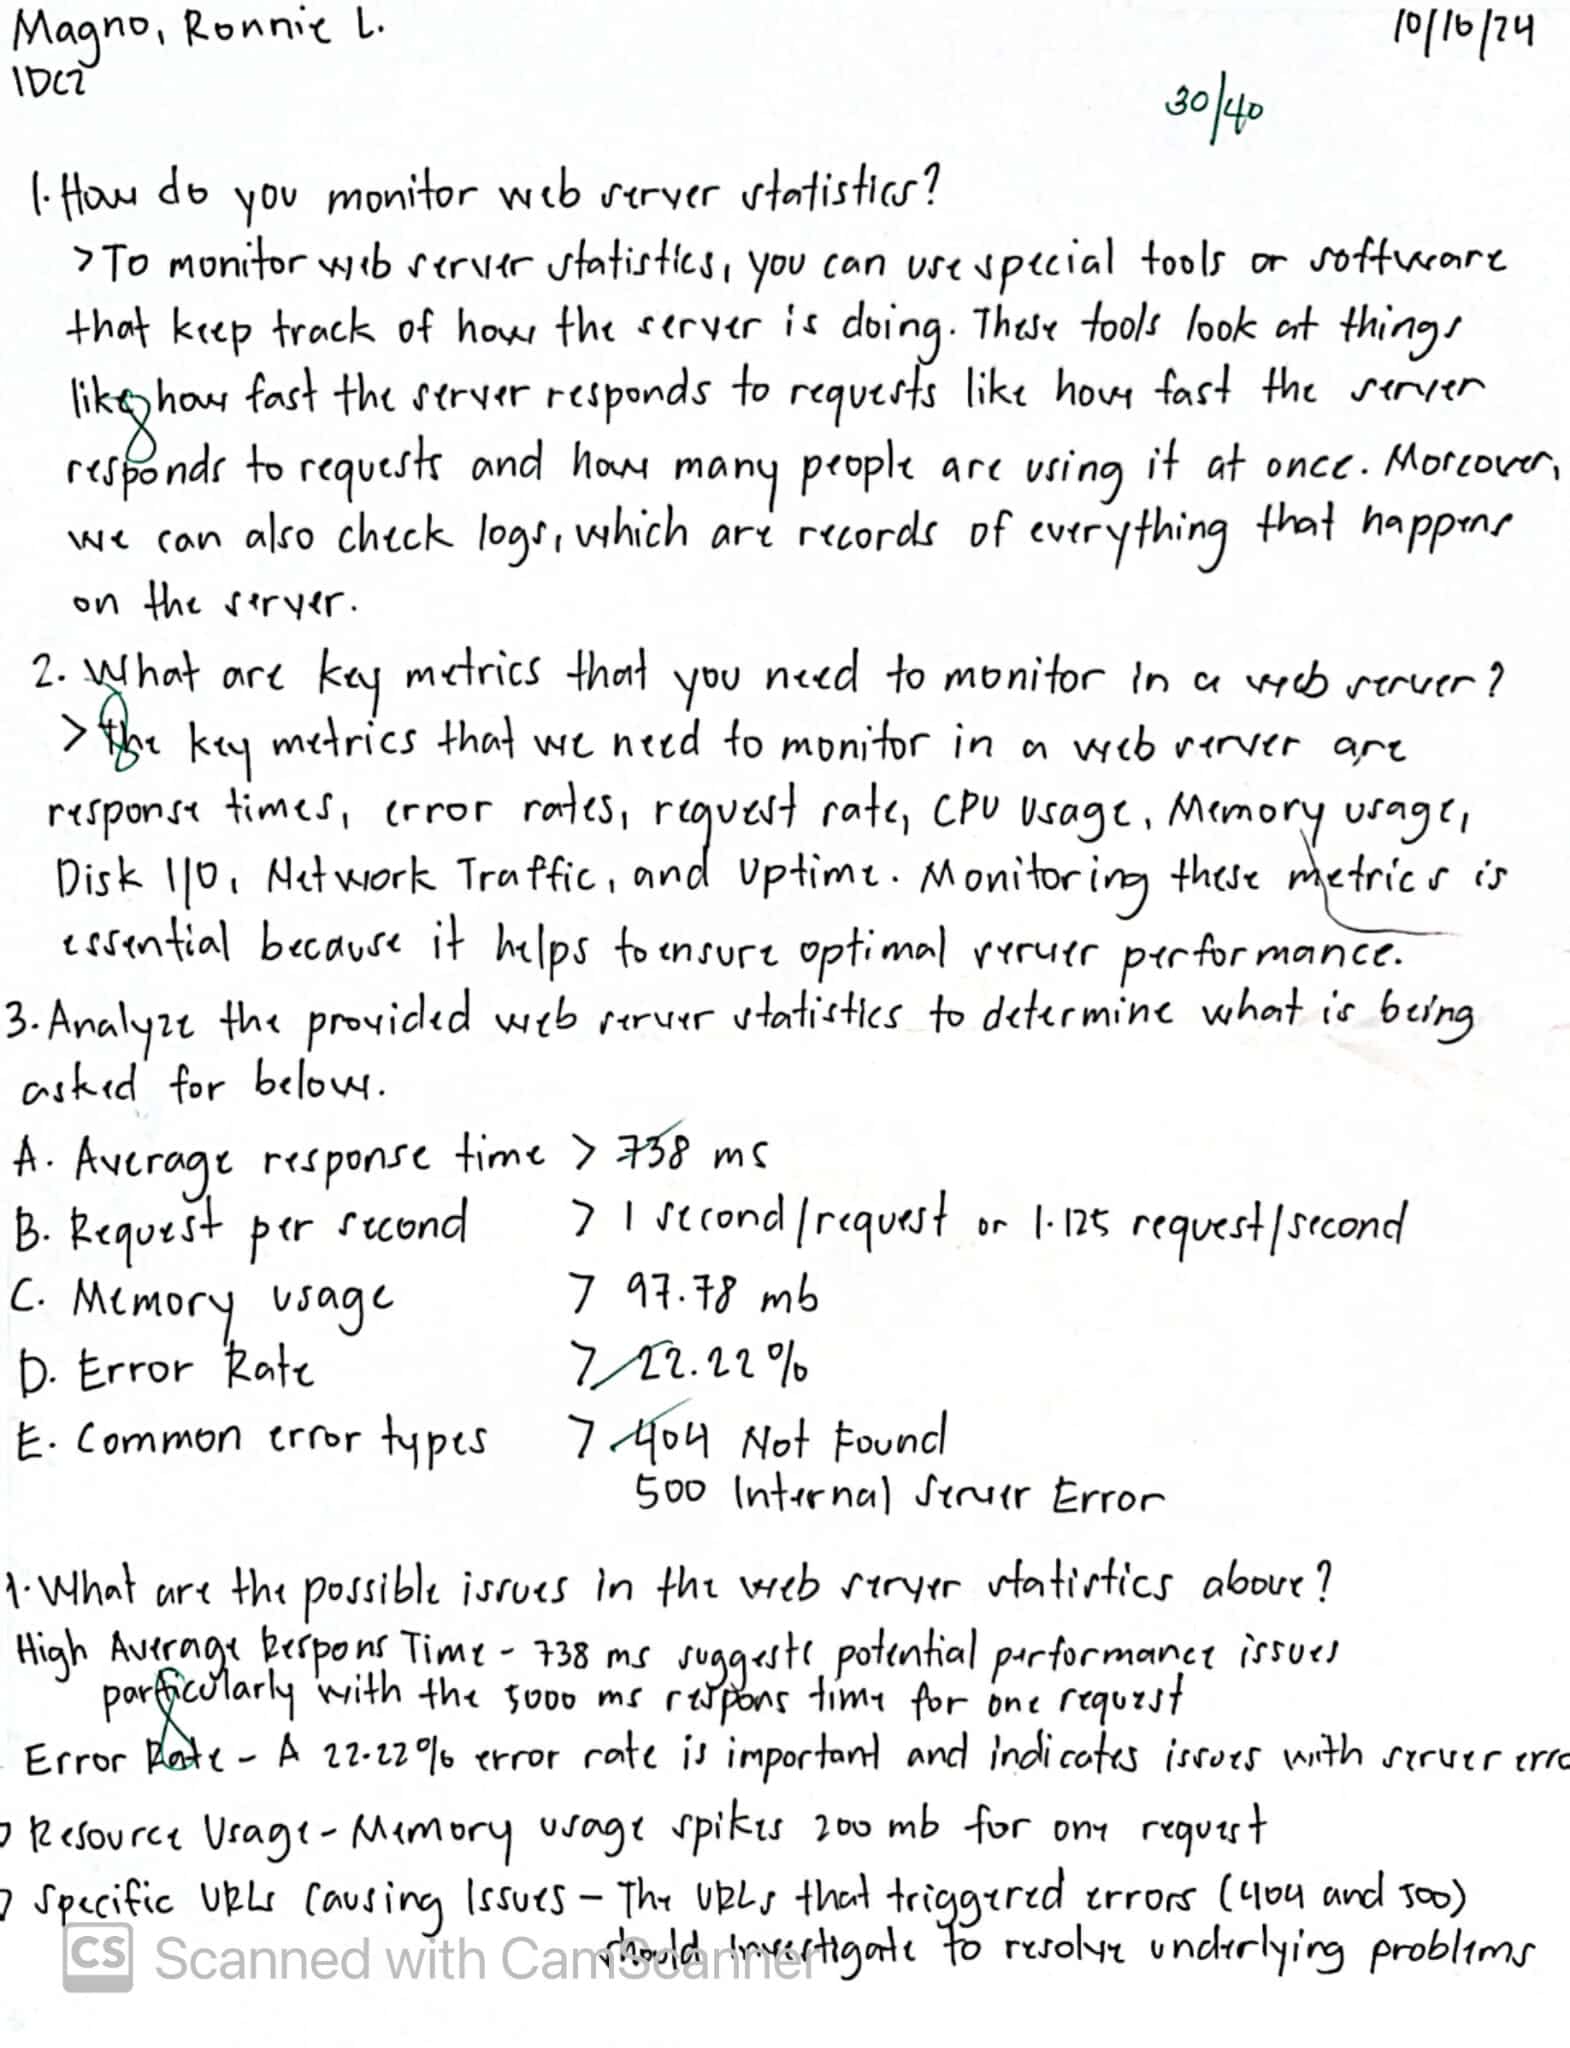 Magno, Ronnie L.
10/16/24
IDC2
30/40
1. How do you monitor web server statistics?
> To monitor web server statistics, you can use special tools or software
that keep track of how the server is doing. These tools look at things
like how fast the server responds to requests like how fast the server
responds to requests and how many people are using it at once. Moreover,
we can also check logs, which are records of everything that happens
on the server.
2. What are key metrics that you need to monitor in a web server?
> the key metrics that we need to monitor in a web server are
response times, error rates, request rate, CPU Usage, Memory usage,
Disk I/O, Network Traffic, and Uptime. Monitoring these metrics is
essential because it helps to ensure optimal server performance.
3. Analyze the provided web server statistics to determine what is being
asked for below.
A. Average response time > 738 ms
B. Request per second > 1 second/request or 1.125 request/second
C. Memory usage > 97.78 mb
D. Error Rate > 22.22%
E. Common error types > 404 Not Found
500 Internal Server Error
1. What are the possible issues in the web server statistics above?
High Average Respons Time - 738 ms suggests potential performance issues
particularly with the 5000 ms respons time for one request
Error Rate - A 22.22% error rate is important and indicates issues with server
Resource Usage - Memory usage spikes 200 mb for one request
Specific URLs Causing Issues - The URLs that triggered errors (404 and 500)
should investigate to resolve underlying problems
CS Scanned with CamScanner